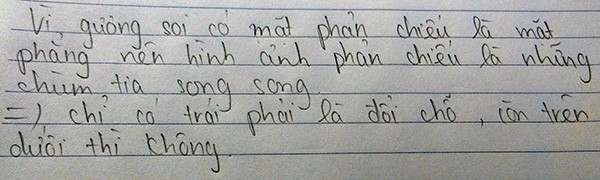 Vì, gương soi có mặt phản chiếu là mặt
phẳng nên hình ảnh phản chiếu là những
chùm tia song song.
=) chỉ có trái phải là đổi chỗ, còn trên
dưới thì không.